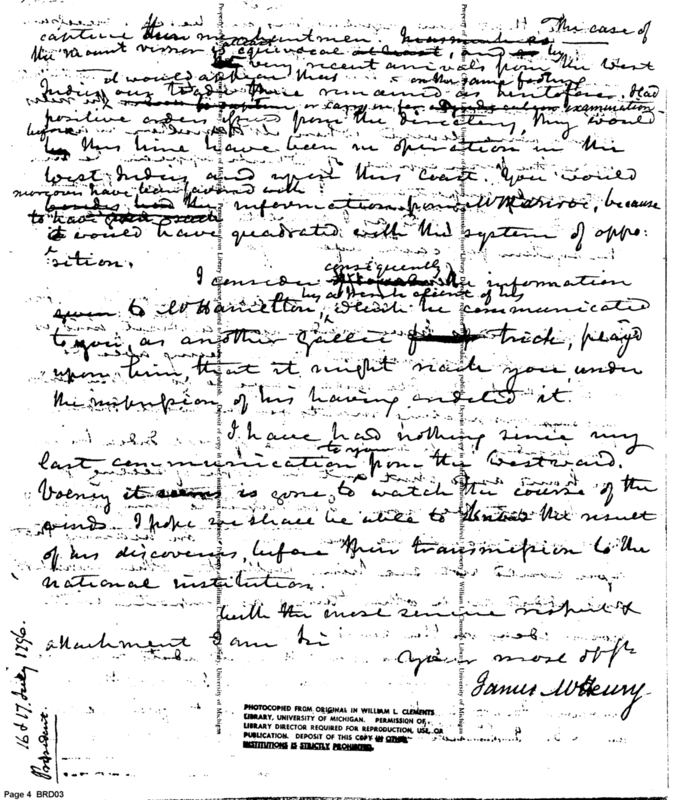 This case of
capture their merchantmen.
the Mount Vernon is equivocal at least, and by
very recent arrivals from the West
it would appear that on the same footing
Indies our trade there remained as heretofore. Had
or carry in for examination
positive orders from the directory, they would
before
this time have been in operation in the
West Indies and upon this coast. You would
moreover have been favored with
besides had the information from Mr
because
to have
it would have quadrated with the system of oppo-
sition.
consequently
I consider the information
given to Mr Hamilton, which he communicated
to you, as another Gallic trick, played
upon him, that it might reach you under
the impression of his having credited it.
I have had nothing since my
to you
last communication from the westward.
Volney it seems is gone to watch the course of the
winds. I hope we shall be able to know the result
of his discoveries, before their transmission to the
national institution.
With the most sincere respect &
attachment I am Sir
Your most obt
James McHenry
16 & 17 July 1796.
President.
PHOTOCOPIED FROM ORIGINAL IN WILLIAM L. CLEMENTS
LIBRARY, UNIVERSITY OF MICHIGAN. PERMISSION OF
LIBRARY DIRECTOR REQUIRED FOR REPRODUCTION, USE, OR
PUBLICATION. DEPOSIT OF THIS COPY IN OTHER
INSTITUTIONS IS STRICTLY PROHIBITED.
Page 4 BRD03